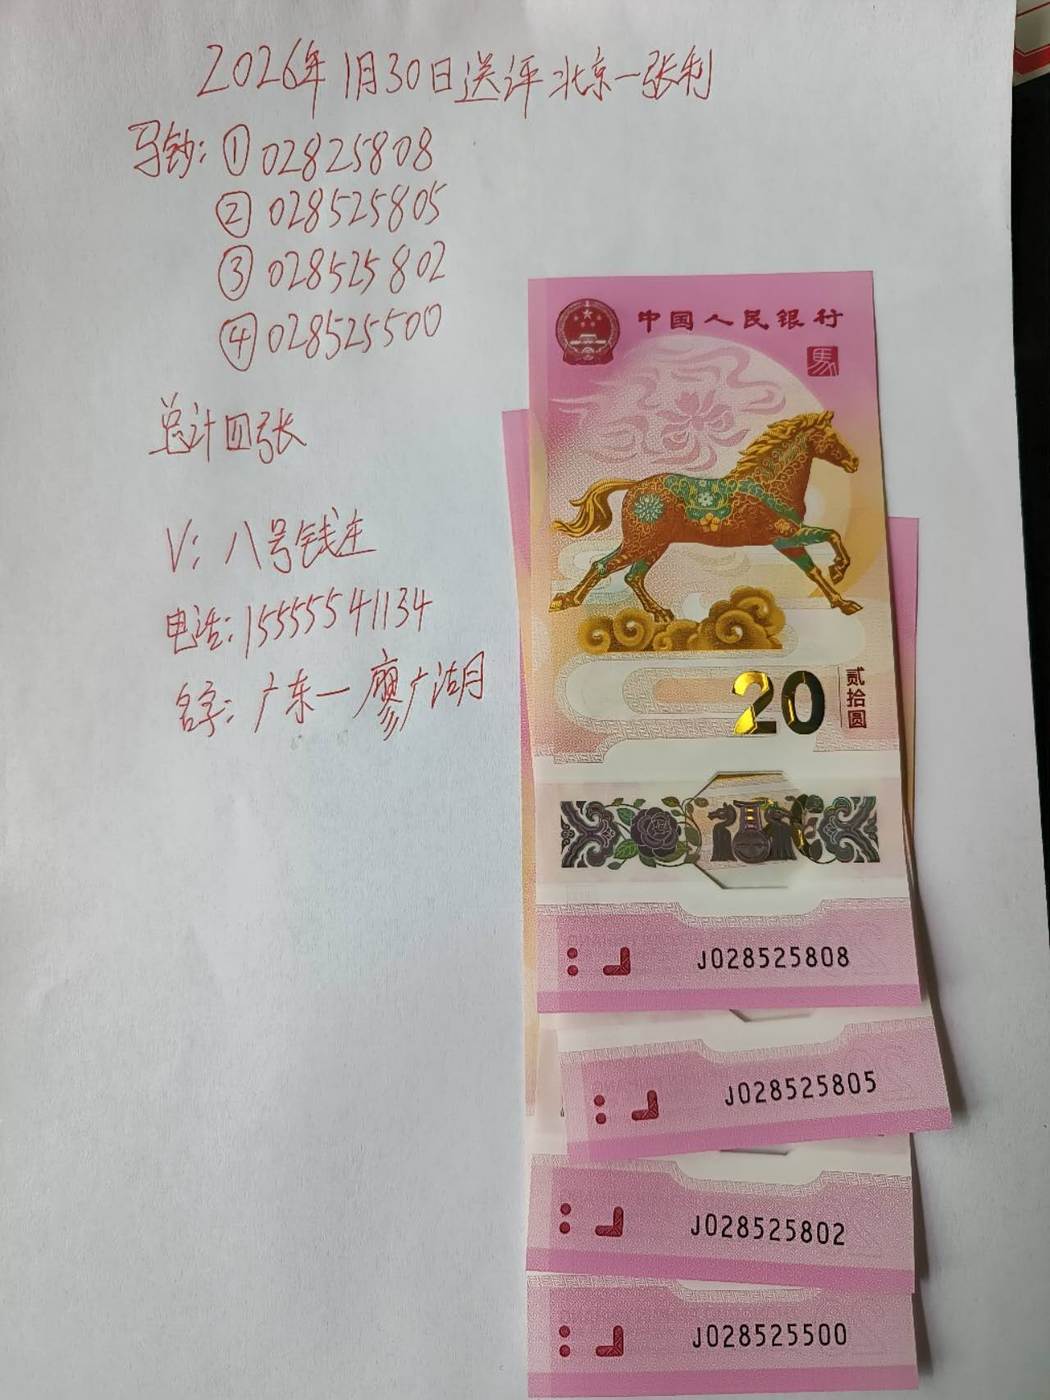 2026年1月30日送评北京一张利
马钞:①02825808
②028525805
③028525802
④028525500
总计四张
V:八号钱庄
电话:15555541134
名字:广东一廖广湖月
中国人民银行
馬
20
贰拾圆
J028525808
J028525805
J028525802
J028525500